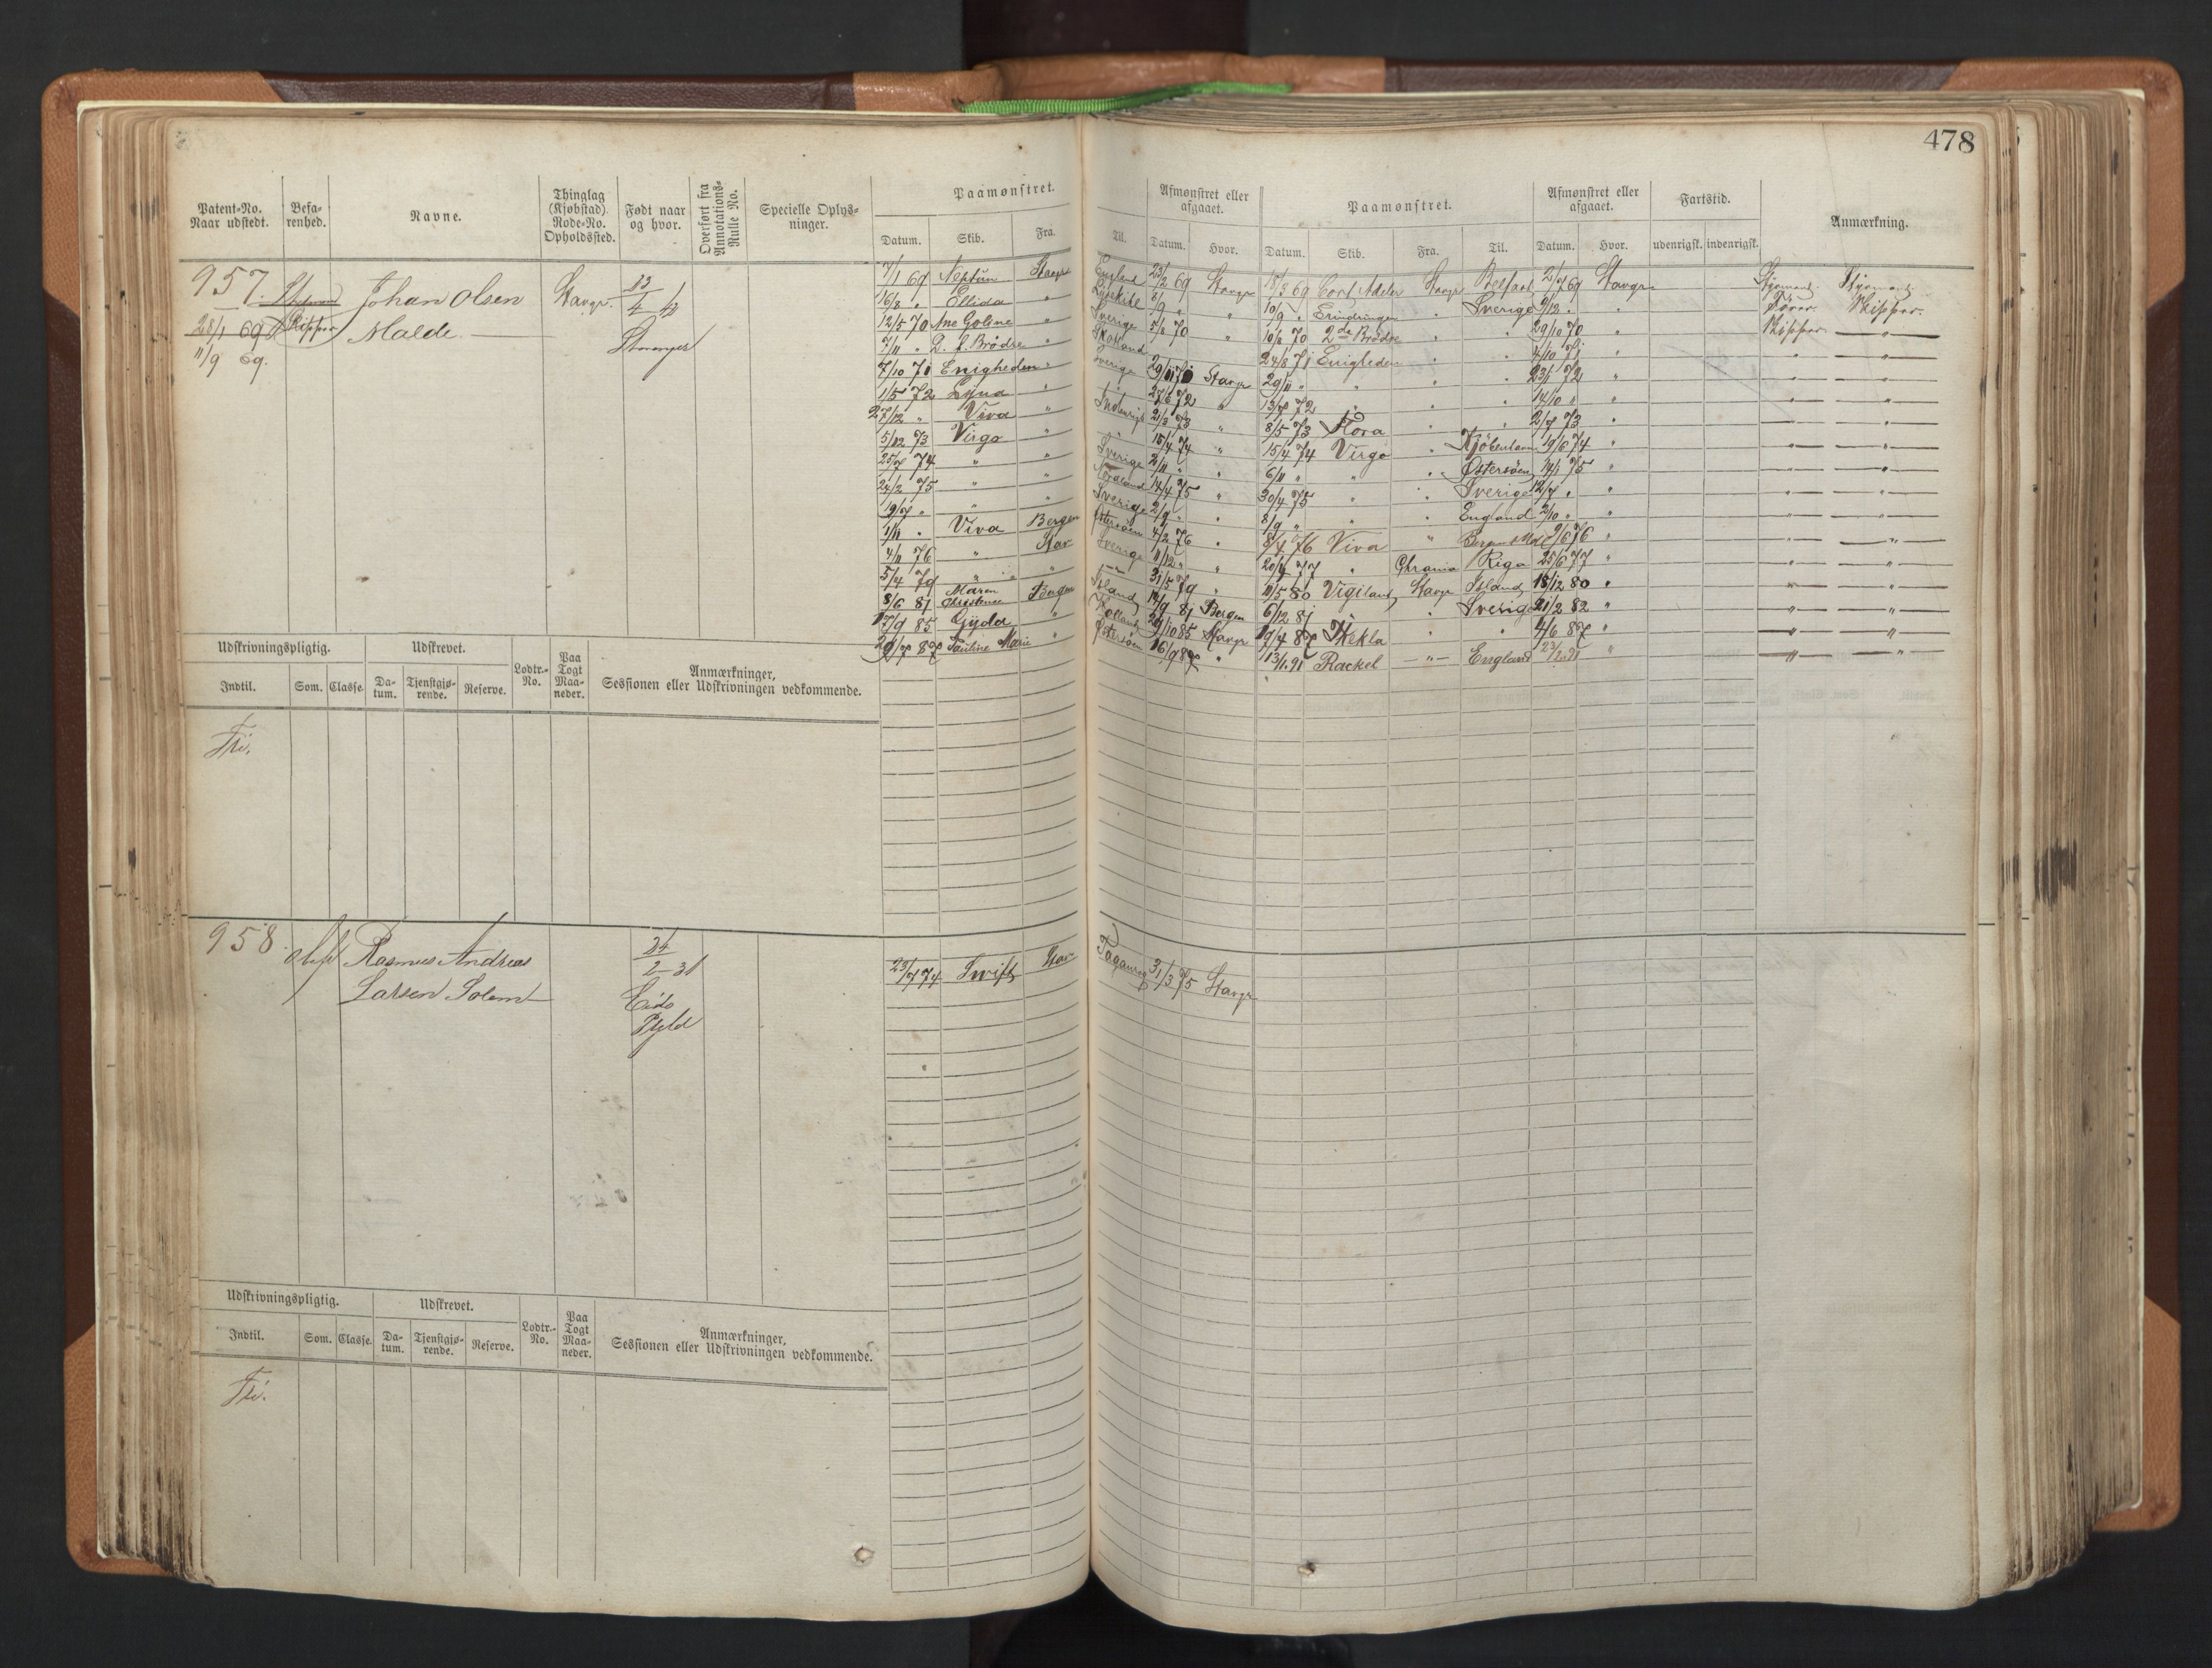 478
Patent-No. Naar udstedt.
Befa-renhed.
Navne.
Thinglag (Kjøbstad). Rode-No. Opholdssted.
Født naar og hvor.
Overført fra Annotations-Rulle No.
Specielle Oplys-ninger.
Paamønstret.
Datum. Skib. Fra. Til.
Afmønstret eller afgaaet.
Datum. Hvor.
Paamønstret.
Datum. Skib. Fra. Til.
Afmønstret eller afgaaet.
Datum. Hvor.
Fartstid.
udenrigsk. indenrigsk.
Anmærkning.
957.
28/1 69
11/9 69.
Skipper
Johan Olsen
Malde
Stavgr.
13/4 42
Stavanger
7/1 69 Neptun Stavgr England 23/2 69 Stavgr 18/3 69 Cort Adeler Stavgr Belfast 2/7 69 Stavgr Styrmand Styrmand
16/8 " Ellida " Lysekil 8/9 " " 10/9 " Erindringen " Sverige 9/12 " " Fører Skipper.
12/5 70 Ane Goline " Sverige 5/8 70 " 10/8 70 2de Brødre " " 29/10 70 " Skipper "
7/11 " D. f. Brødre " Skotland 24/8 71 Enigheden " " 4/10 71 " " "
7/10 71 Enigheden " Sverige 29/11 71 Stavgr 29/11 " " " " 23/1 72 " " "
1/5 72 " " 27/6 72 " 13/7 72 " " " 14/10 " " " "
27/12 " Viva " Indenrigs 21/3 73 " 8/5 73 Flora " " 2/7 73 " " "
5/12 73 Virgo " " 15/4 74 " 15/4 74 Virgo " Kjøbenhavn 19/6 74 " " "
25/7 74 " " Sverige 2/11 " " 6/11 " " " Østersøen 14/1 75 " " "
24/2 75 " " 14/4 75 " 30/4 75 " " Sverige 12/7 " " " "
19/7 " " " Sverige 2/9 " " 8/9 " " " England 2/10 " " " "
1/11 " Viva Bergen Østersøen 4/2 76 " 8/4 76 Viva " 9/6 76 " " "
4/11 76 " Stav Sverige 11/12 " " 20/4 77 " Chrania Riga 25/6 77 " " "
5/4 79 " " " 31/5 79 " 11/5 80 Vigiland Stavgr Island 18/12 80 " " "
8/6 81 Maren Christense Bergen Island 14/9 81 Bergen 6/12 81 " " Sverige 21/2 82 " " "
17/9 85 Gyda " Holland 29/10 85 Stavgr 19/4 87 Thekla " " 4/6 87 " " "
20/7 87 Pauline Marie " Østersøen 16/9 87 " 13/1 91 Rackel " England 23/2 91 " " "
Udskrivningspligtig.
Indtil. Som. Classe.
Udskrevet.
Da-tum. Tjenstgjø-rende. Reserve.
Lodtr.-No.
Paa Togt Maa-neder.
Anmærkninger,
Sessionen eller Udskrivningen vedkommende.
Fri.
958.
Rasmus Andreas
Larsen Solem
24/2 31
Eids
Pgld
23/7 74 Swift Stav Taganrog 31/3 75 Stavgr
Udskrivningspligtig.
Indtil. Som. Classe.
Udskrevet.
Da-tum. Tjenstgjø-rende. Reserve.
Lodtr.-No.
Paa Togt Maa-neder.
Anmærkninger,
Sessionen eller Udskrivningen vedkommende.
Fri.